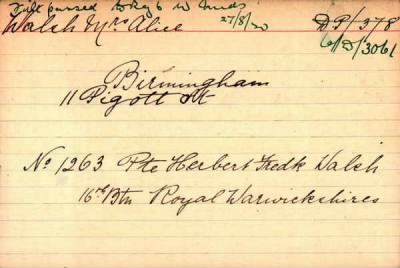 passed
Walsh Mrs Alice 27/8/20 DP/378
6/D/3061
Birmingham
11 Pigott St
No 1263 Pte Herbert Fredk Walsh
16th Btn Royal Warwickshires